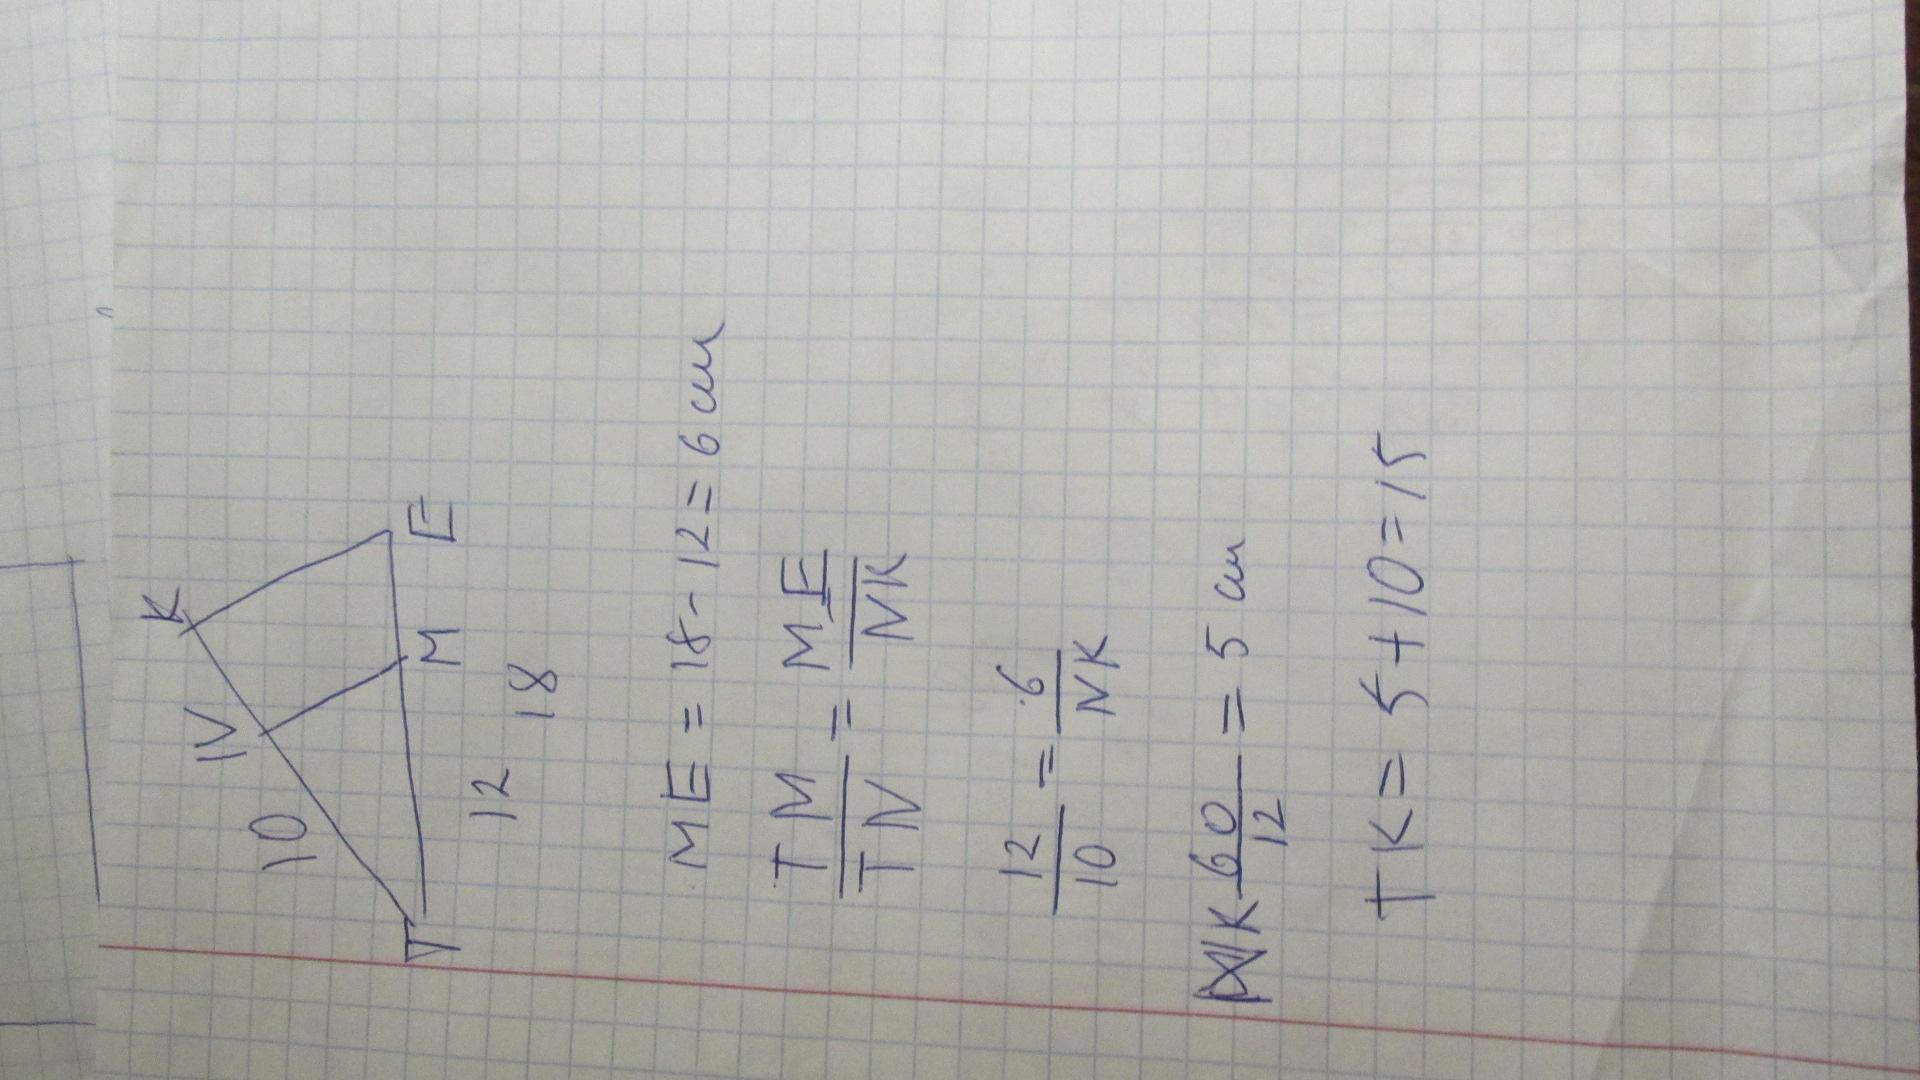 K
N
10
M
E
T
12
18
ME = 18 - 12 = 6 см
TM/TN = ME/NK
12/10 = 6/NK
NK 60/12 = 5 см
TK = 5 + 10 = 15